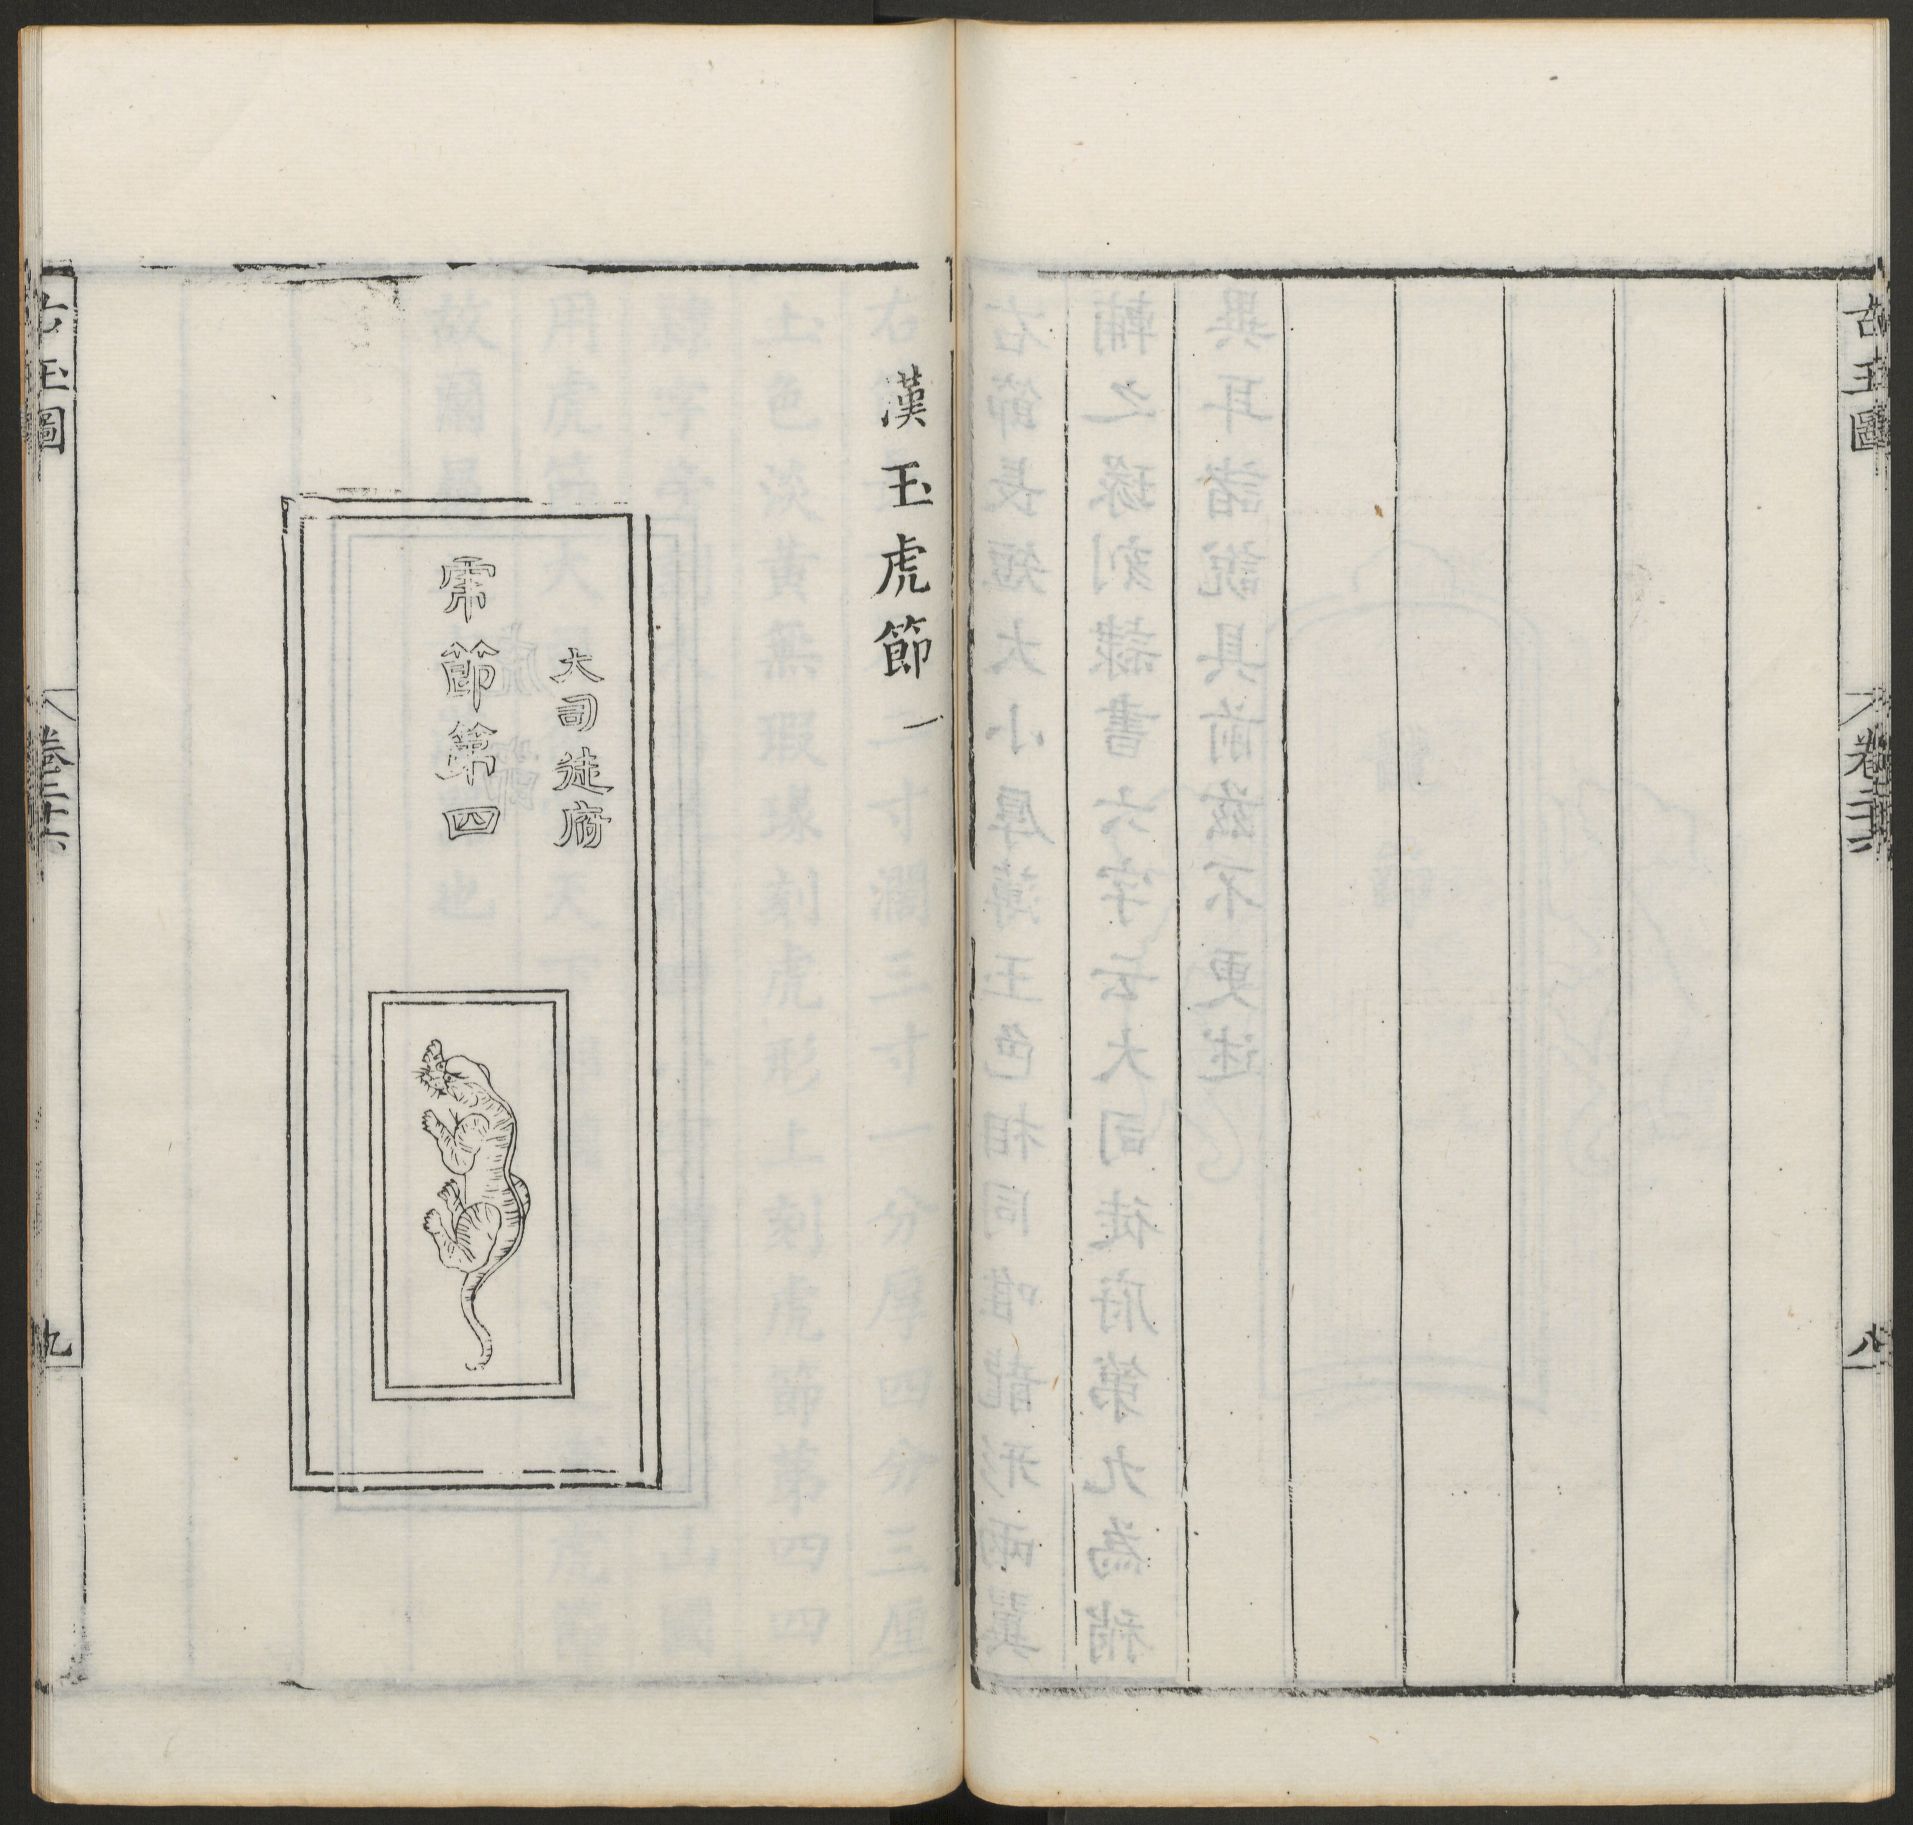 古玉圖
卷二十六
八
漢玉虎節 一
大司徒府
虎節第四
古玉圖
卷二十六
九